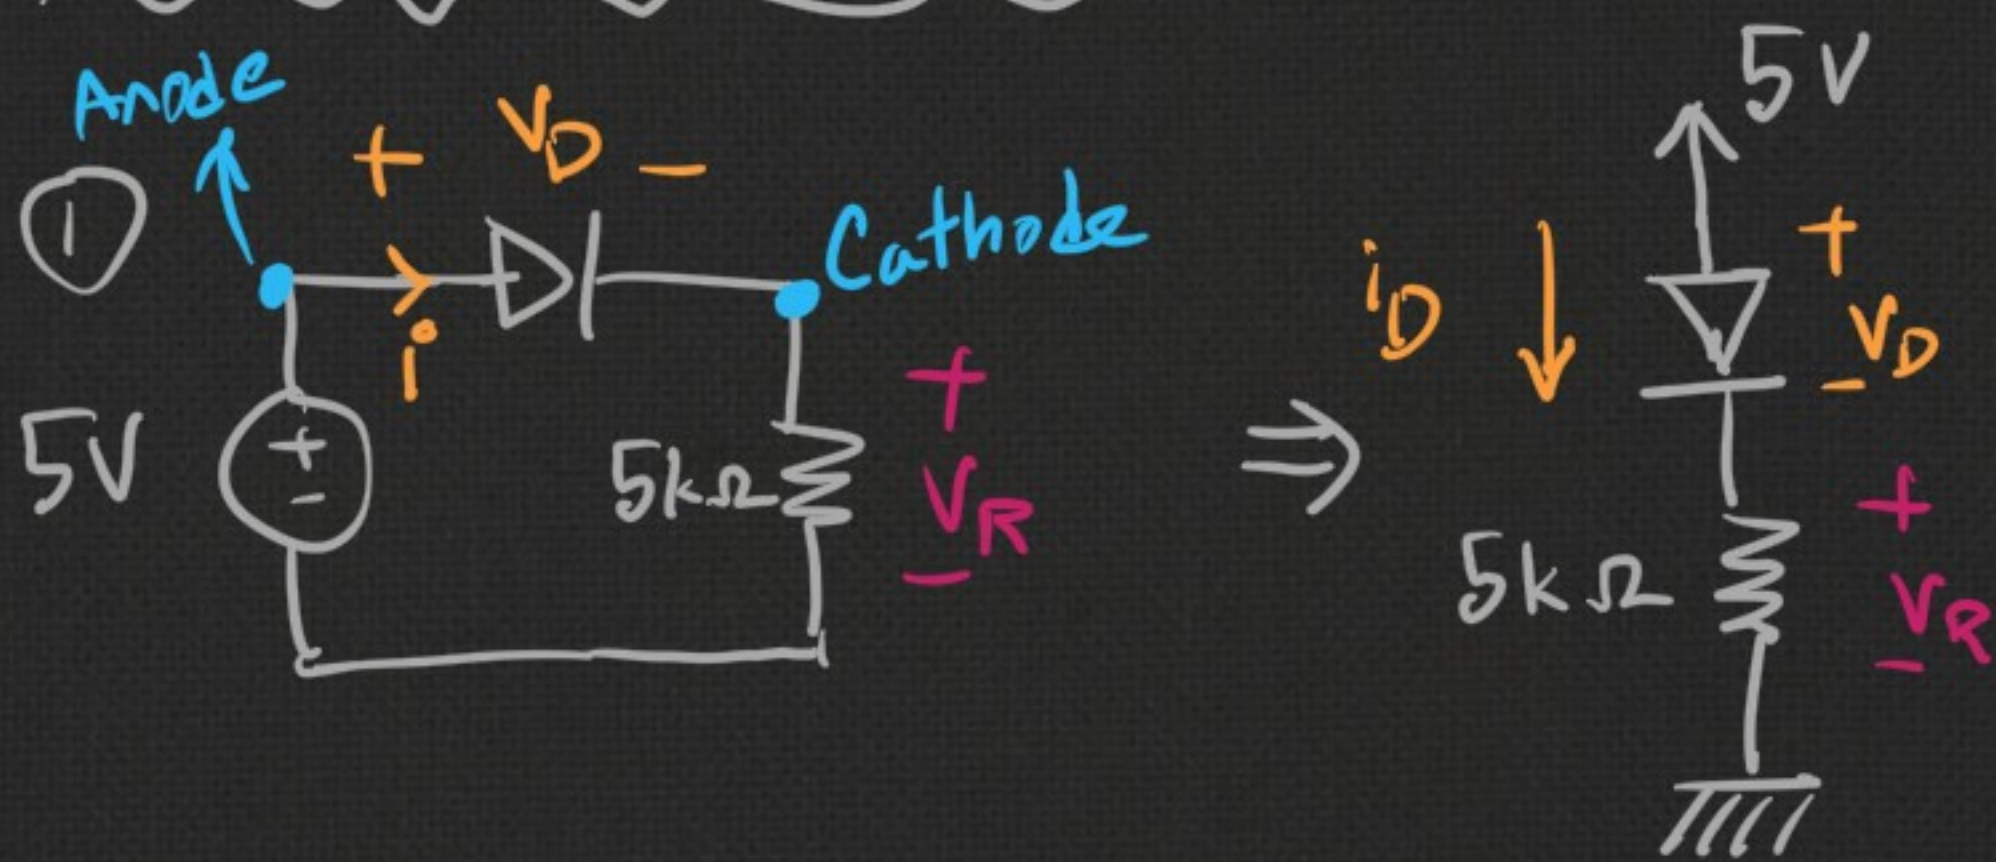 Anode
+ VD −
1
Cathode
i
5V
+
−
5kΩ
+
VR
−
⇒
5V
iD
+
VD
−
5kΩ
+
VR
−